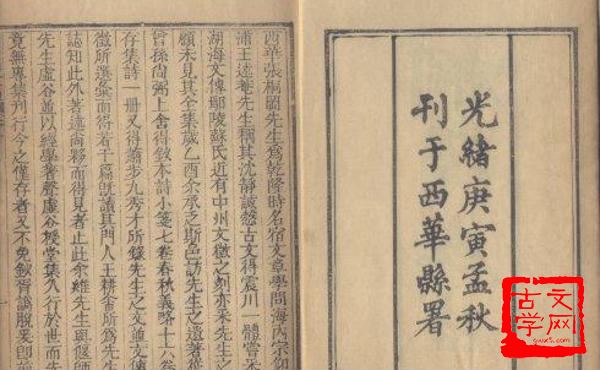 光緒庚寅孟秋
刊于西華縣署
西華張桐岡先生為乾隆時名宿文章學問海內宗仰
浦王述庵先生稱其沈靜誠慤古文得震川一體嘗采
湖海文傳鄢陵蘇氏近有中州文徵之刻亦采先生之
顧未見其全集歲乙酉余承乏斯邑訪先生之遺著從
曾孫尚弼上舍得敘本詩小箋七卷春秋義略十六卷
存集詩一冊又得蕭步九秀才所錄先生之文並文傳
徵所選彙而得若干篇旣讀其門人王耕畬所為先生
誌知此外著述尚夥而得見者止此余維先生與偃師
先生虛谷並以經學著聲虛谷授堂集久行於世而先
竟無專集刊行今之僅存者又不免譌脫爰即前
古文学网
gwx5.com